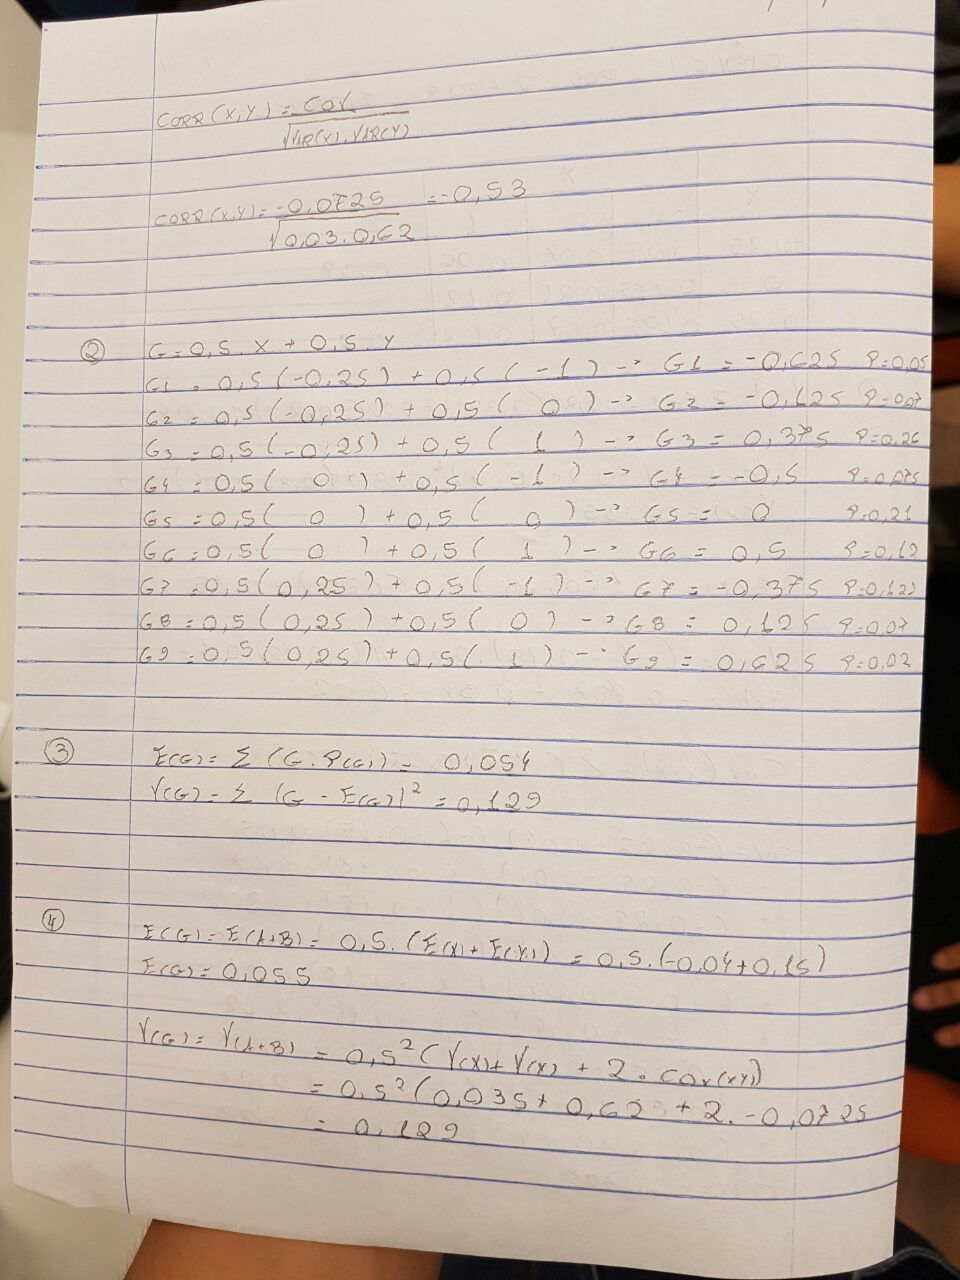 CORR(X,Y) = COV
√VAR(X).VAR(Y)
CORR(X,Y) = -0,0725 = -0,53
√0,03.0,62
② G = 0,5.X + 0,5.Y
G1 = 0,5(-0,25) + 0,5(-1) -> G1 = -0,625 P=0,05
G2 = 0,5(-0,25) + 0,5(0) -> G2 = -0,125 P=0,07
G3 = 0,5(-0,25) + 0,5(1) -> G3 = 0,375 P=0,26
G4 = 0,5(0) + 0,5(-1) -> G4 = -0,5 P=0,075
G5 = 0,5(0) + 0,5(0) -> G5 = 0 P=0,21
G6 = 0,5(0) + 0,5(1) -> G6 = 0,5 P=0,12
G7 = 0,5(0,25) + 0,5(-1) -> G7 = -0,375
G8 = 0,5(0,25) + 0,5(0) -> G8 = 0,125 P=0,07
G9 = 0,5(0,25) + 0,5(1) -> G9 = 0,625 P=0,02
③ E(G) = Σ (G.P(G)) = 0,054
V(G) = Σ (G - E(G))² = 0,129
④ E(G) = E(A+B) = 0,5.(E(X)+E(Y)) = 0,5.(-0,04+0,15)
E(G) = 0,055
V(G) = V(A+B) = 0,5²(V(X)+V(X) + 2.COV(XY))
= 0,5²(0,035+0,62 + 2.-0,0725
= 0,129